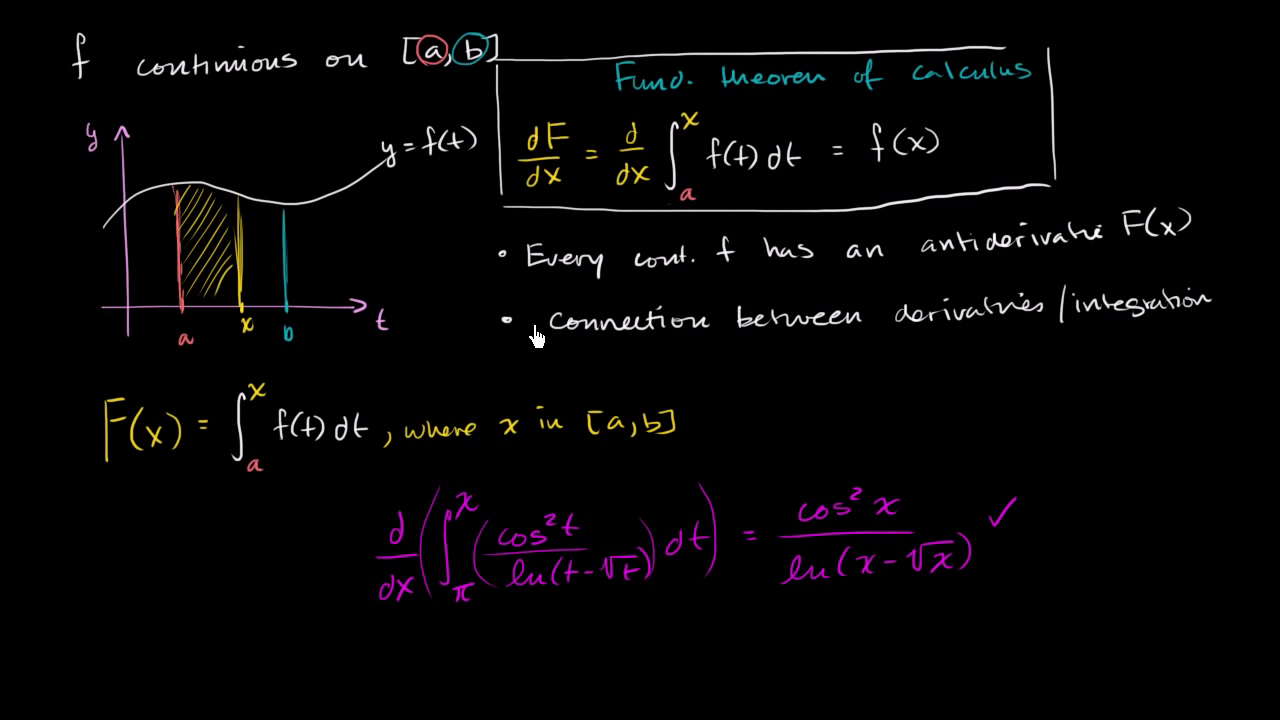 f continuous on [a, b]
Fund. theorem of calculus
dF/dx = d/dx ∫_a^x f(t) dt = f(x)
y
y = f(t)
a
x
b
t
• Every cont. f has an antiderivative F(x)
• Connection between derivatives/integration
F(x) = ∫_a^x f(t) dt, where x in [a,b]
d/dx (∫_π^x (cos²t / ln(t-√t)) dt) = cos²x / ln(x-√x) ✓